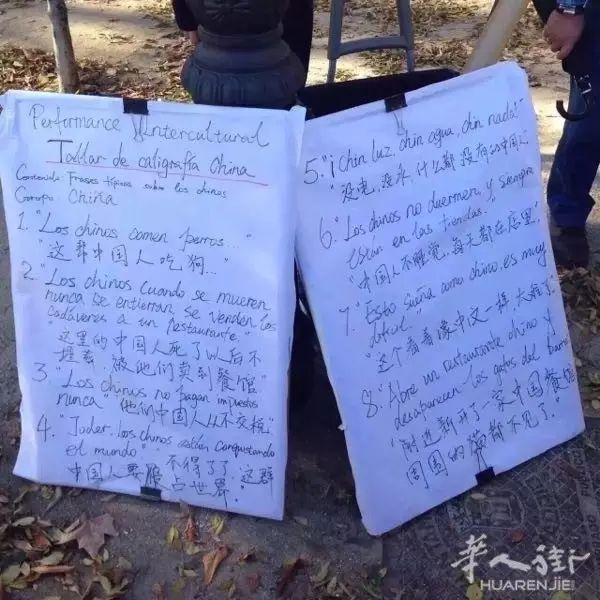 Performance Intercultural
Tallar de caligrafía China
Contenido: Frases típicas sobre los chinos
Goropo: Chiña
1. "Los chinos comen perros..."
"这群中国人吃狗..."
2. "Los chinos cuando se mueren
nunca se entierran se venden los
cadáveres a un restaurante"
"这里的中国人死了以后不
埋葬,被他们卖到餐馆"
3. "Los chinos no pagan impuestos
nunca" "他们中国人从不交税"
4. "Joder, los chinos están conquistando
el mundo" "不得了了,这群
中国人要占世界"
5. "¡Chin luz, chin agua, chin nada!"
"没电,没水,什么都没有的中国人"
6. "Los chinos no duermen, y siempre
están en las tiendas."
"中国人不睡觉,每天都在店里"
7. "Esto sueña como chino, es muy
difícil."
"这个看着像中文一样,太难了"
8. "Abre un restaurante chino y
desaparecen los gatos del barrio"
"附近新开了一家中国餐馆
周围的猫都不见了"
华人街
HUARENJIE